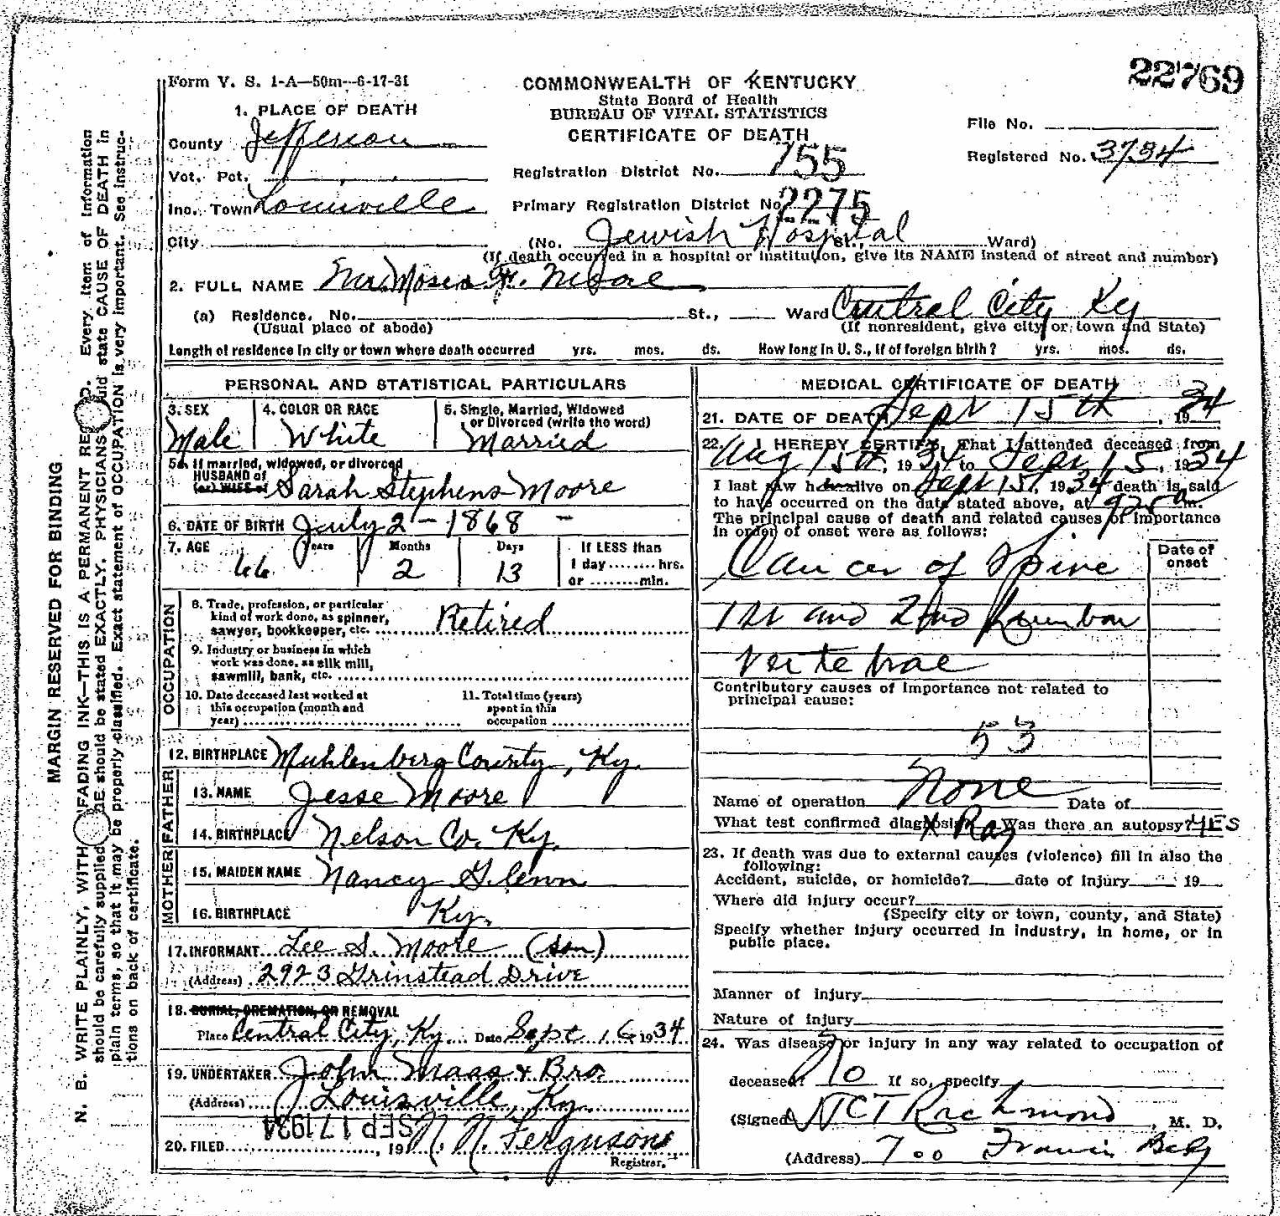 22769
Form V. S. 1-A—50m—6-17-31
COMMONWEALTH OF KENTUCKY
State Board of Health
BUREAU OF VITAL STATISTICS
CERTIFICATE OF DEATH
File No.
Registered No. 3734
1. PLACE OF DEATH
County Jefferson
Vot. Pct.
Inc. Town Louisville
City
Registration District No. 755
Primary Registration District No. 2275
(No. Jewish Hospital St., Ward)
(If death occurred in a hospital or institution, give its NAME instead of street and number)
2. FULL NAME Mr. Moses F. Moore
(a) Residence. No. St., Ward Central City Ky
(Usual place of abode) (If nonresident, give city or town and State)
Length of residence in city or town where death occurred yrs. mos. ds. How long in U. S., if of foreign birth? yrs. mos. ds.
PERSONAL AND STATISTICAL PARTICULARS
3. SEX Male
4. COLOR OR RACE White
5. Single, Married, Widowed or Divorced (write the word) Married
5a. If married, widowed, or divorced
HUSBAND of
(or) WIFE of Sarah Stephens Moore
6. DATE OF BIRTH July 2 - 1868 -
7. AGE Years 66 Months 2 Days 13 If LESS than
1 day ........ hrs.
or ........ min.
OCCUPATION
8. Trade, profession, or particular
kind of work done, as spinner,
sawyer, bookkeeper, etc. Retired
9. Industry or business in which
work was done, as silk mill,
sawmill, bank, etc.
10. Date deceased last worked at
this occupation (month and
year)
11. Total time (years)
spent in this
occupation
12. BIRTHPLACE Muhlenberg County, Ky.
FATHER
13. NAME Jesse Moore
14. BIRTHPLACE Nelson Co. Ky.
MOTHER
15. MAIDEN NAME Nancy Glenn
16. BIRTHPLACE Ky.
17. INFORMANT Lee S. Moore (son)
(Address) 2923 Grinstead Drive
18. BURIAL, CREMATION, OR REMOVAL
Place Central City, Ky. Date Sept 16 1934
19. UNDERTAKER John Maas & Bro.
(Address) Louisville, Ky.
20. FILED SEP 17 1934, 19 N. N. Ferguson
Registrar.
MEDICAL CERTIFICATE OF DEATH
21. DATE OF DEATH Sept 15th, 1934
22. I HEREBY CERTIFY, That I attended deceased from
Aug 15th, 1934 to Sept 15, 1934
I last saw h alive on Sept 15, 1934 death is said
to have occurred on the date stated above, at 925 a m.
The principal cause of death and related causes of importance
in order of onset were as follows:
Date of
onset
Cancer of Spine
1st and 2nd Lumbar
vertebrae
Contributory causes of importance not related to
principal cause:
53
Name of operation None Date of
What test confirmed diagnosis X Ray Was there an autopsy? YES
23. If death was due to external causes (violence) fill in also the
following:
Accident, suicide, or homicide? date of injury 19
Where did injury occur?
(Specify city or town, county, and State)
Specify whether injury occurred in industry, in home, or in
public place.
Manner of injury
Nature of injury
24. Was disease or injury in any way related to occupation of
deceased? No If so, specify
(Signed) Richmond, M. D.
(Address) 700 Francis Bldg
MARGIN RESERVED FOR BINDING
N. B. WRITE PLAINLY, WITH UNFADING INK—THIS IS A PERMANENT RECORD. Every item of information
should be carefully supplied. AGE should be stated EXACTLY. PHYSICIANS should state CAUSE OF DEATH in
plain terms, so that it may be properly classified. Exact statement of OCCUPATION is very important. See instruc-
tions on back of certificate.